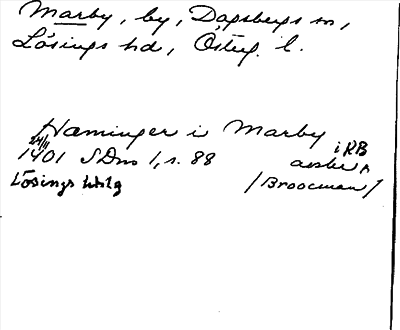 Marby, by, Dagsbergs sn,
Lösings hd, Österg. l.
Haminger i Marby
24/11 i RB
1401 SDns 1, s. 88 avskr
Lösings hhlg /Broocman/